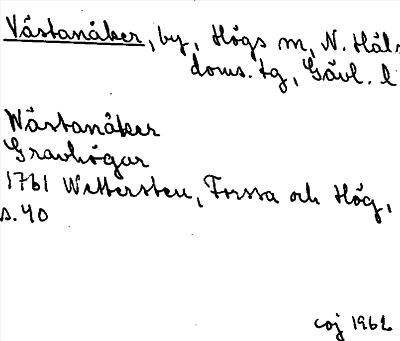 Västanåker, by, Högs sn, N. Häls
doms. tg, Gävl. l
Wästanåker
Gravhögar
1761 Wettersten, Forssa och Hög,
s. 40
coj 1962